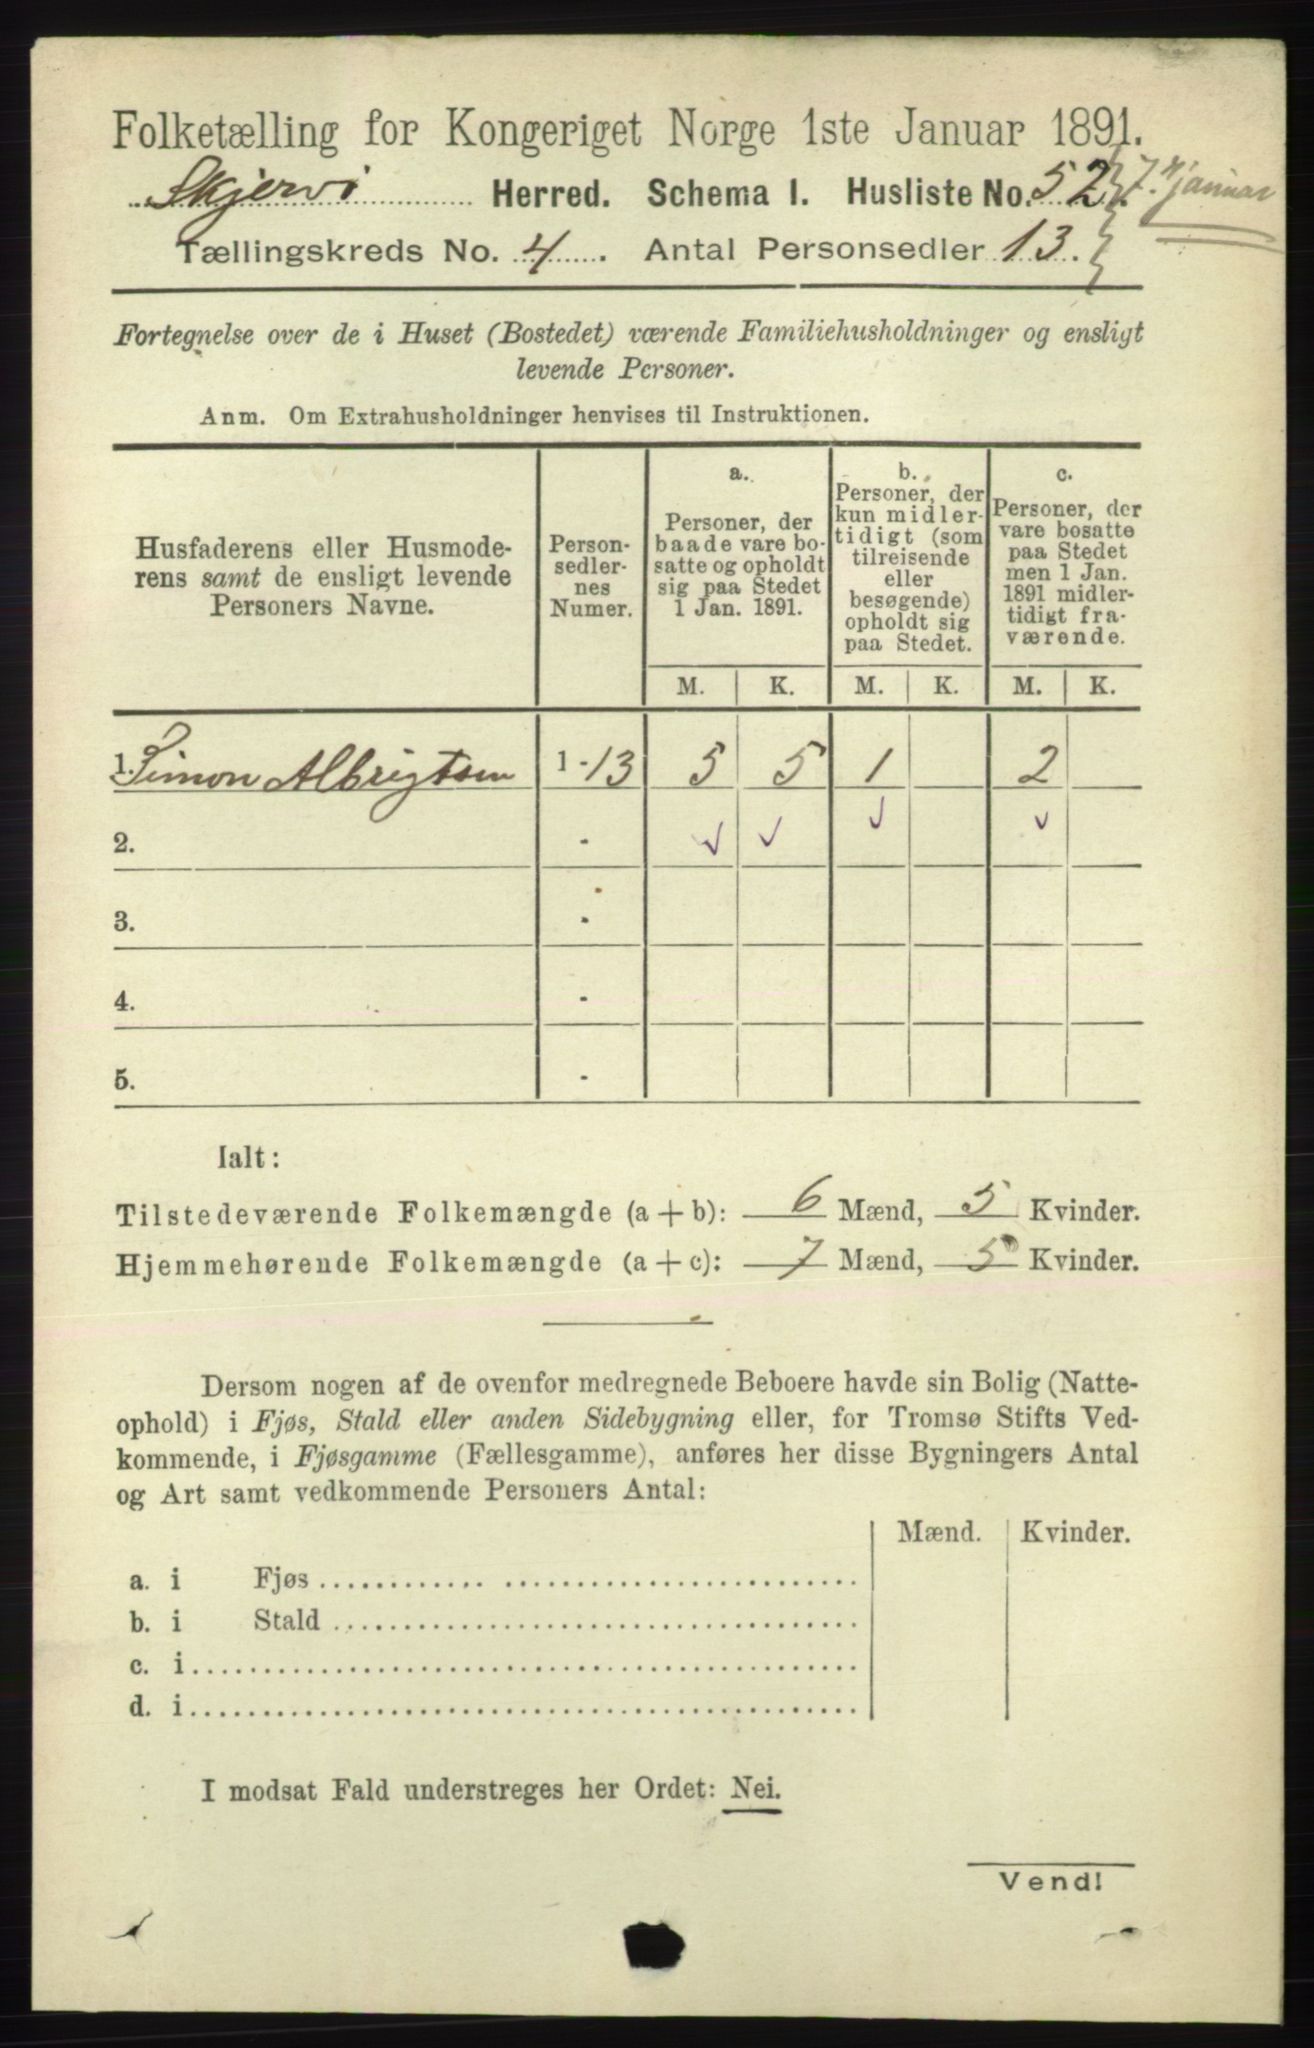 Folketælling for Kongeriget Norge 1ste Januar 1891.
Skjervö Herred. Schema I. Husliste No. 52 7. januar
Tællingskreds No. 4 . Antal Personsedler 13 .
Fortegnelse over de i Huset (Bostedet) værende Familiehusholdninger og ensligt
levende Personer.
Anm. Om Extrahusholdninger henvises til Instruktionen.
Husfaderens eller Husmode-
rens samt de ensligt levende
Personers Navne.
Person-
sedler-
nes
Numer.
a.
Personer, der
baade vare bo-
satte og opholdt
sig paa Stedet
1 Jan. 1891.
b.
Personer, der
kun midler-
tidigt (som
tilreisende
eller
besøgende)
opholdt sig
paa Stedet.
c.
Personer, der
vare bosatte
paa Stedet
men 1 Jan.
1891 midler-
tidigt fra-
værende.
M. K. M. K. M. K.
1. Simon Albrigtsen 1 - 13 5 5 1 2
2. -
3. -
4. -
5. -
Ialt:
Tilstedeværende Folkemængde (a + b): 6 Mænd, 5 Kvinder.
Hjemmehørende Folkemængde (a + c): 7 Mænd, 5 Kvinder.
Dersom nogen af de ovenfor medregnede Beboere havde sin Bolig (Natte-
ophold) i Fjøs, Stald eller anden Sidebygning eller, for Tromsø Stifts Ved-
kommende, i Fjøsgamme (Fællesgamme), anføres her disse Bygningers Antal
og Art samt vedkommende Personers Antal:
Mænd. Kvinder.
a. i Fjøs
b. i Stald
c. i
d. i
I modsat Fald understreges her Ordet: Nei.
Vend!